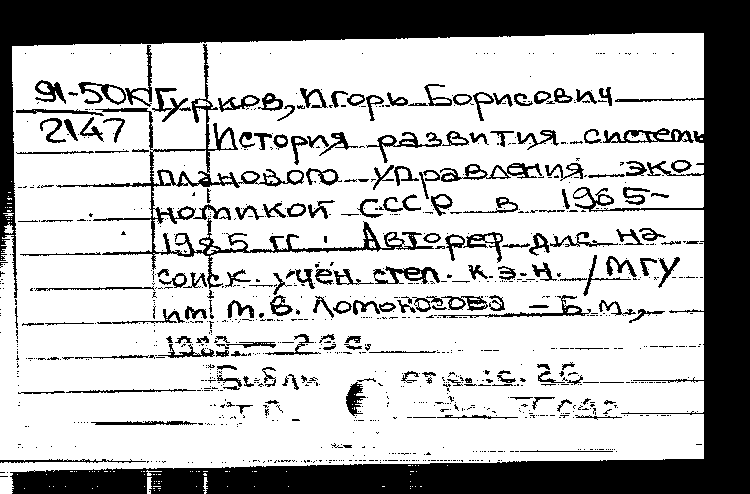 91-50К Гурков, Игорь Борисович
2147 История развития системы
планового управления эко-
номикой СССР в 1965-
1985 гг. : Автореф. дис. на
соиск. учён. степ. к.э.н. / МГУ
им. М.В. Ломоносова – Б.м.,
1989. – 23 с.
Библи стр.: с. 26